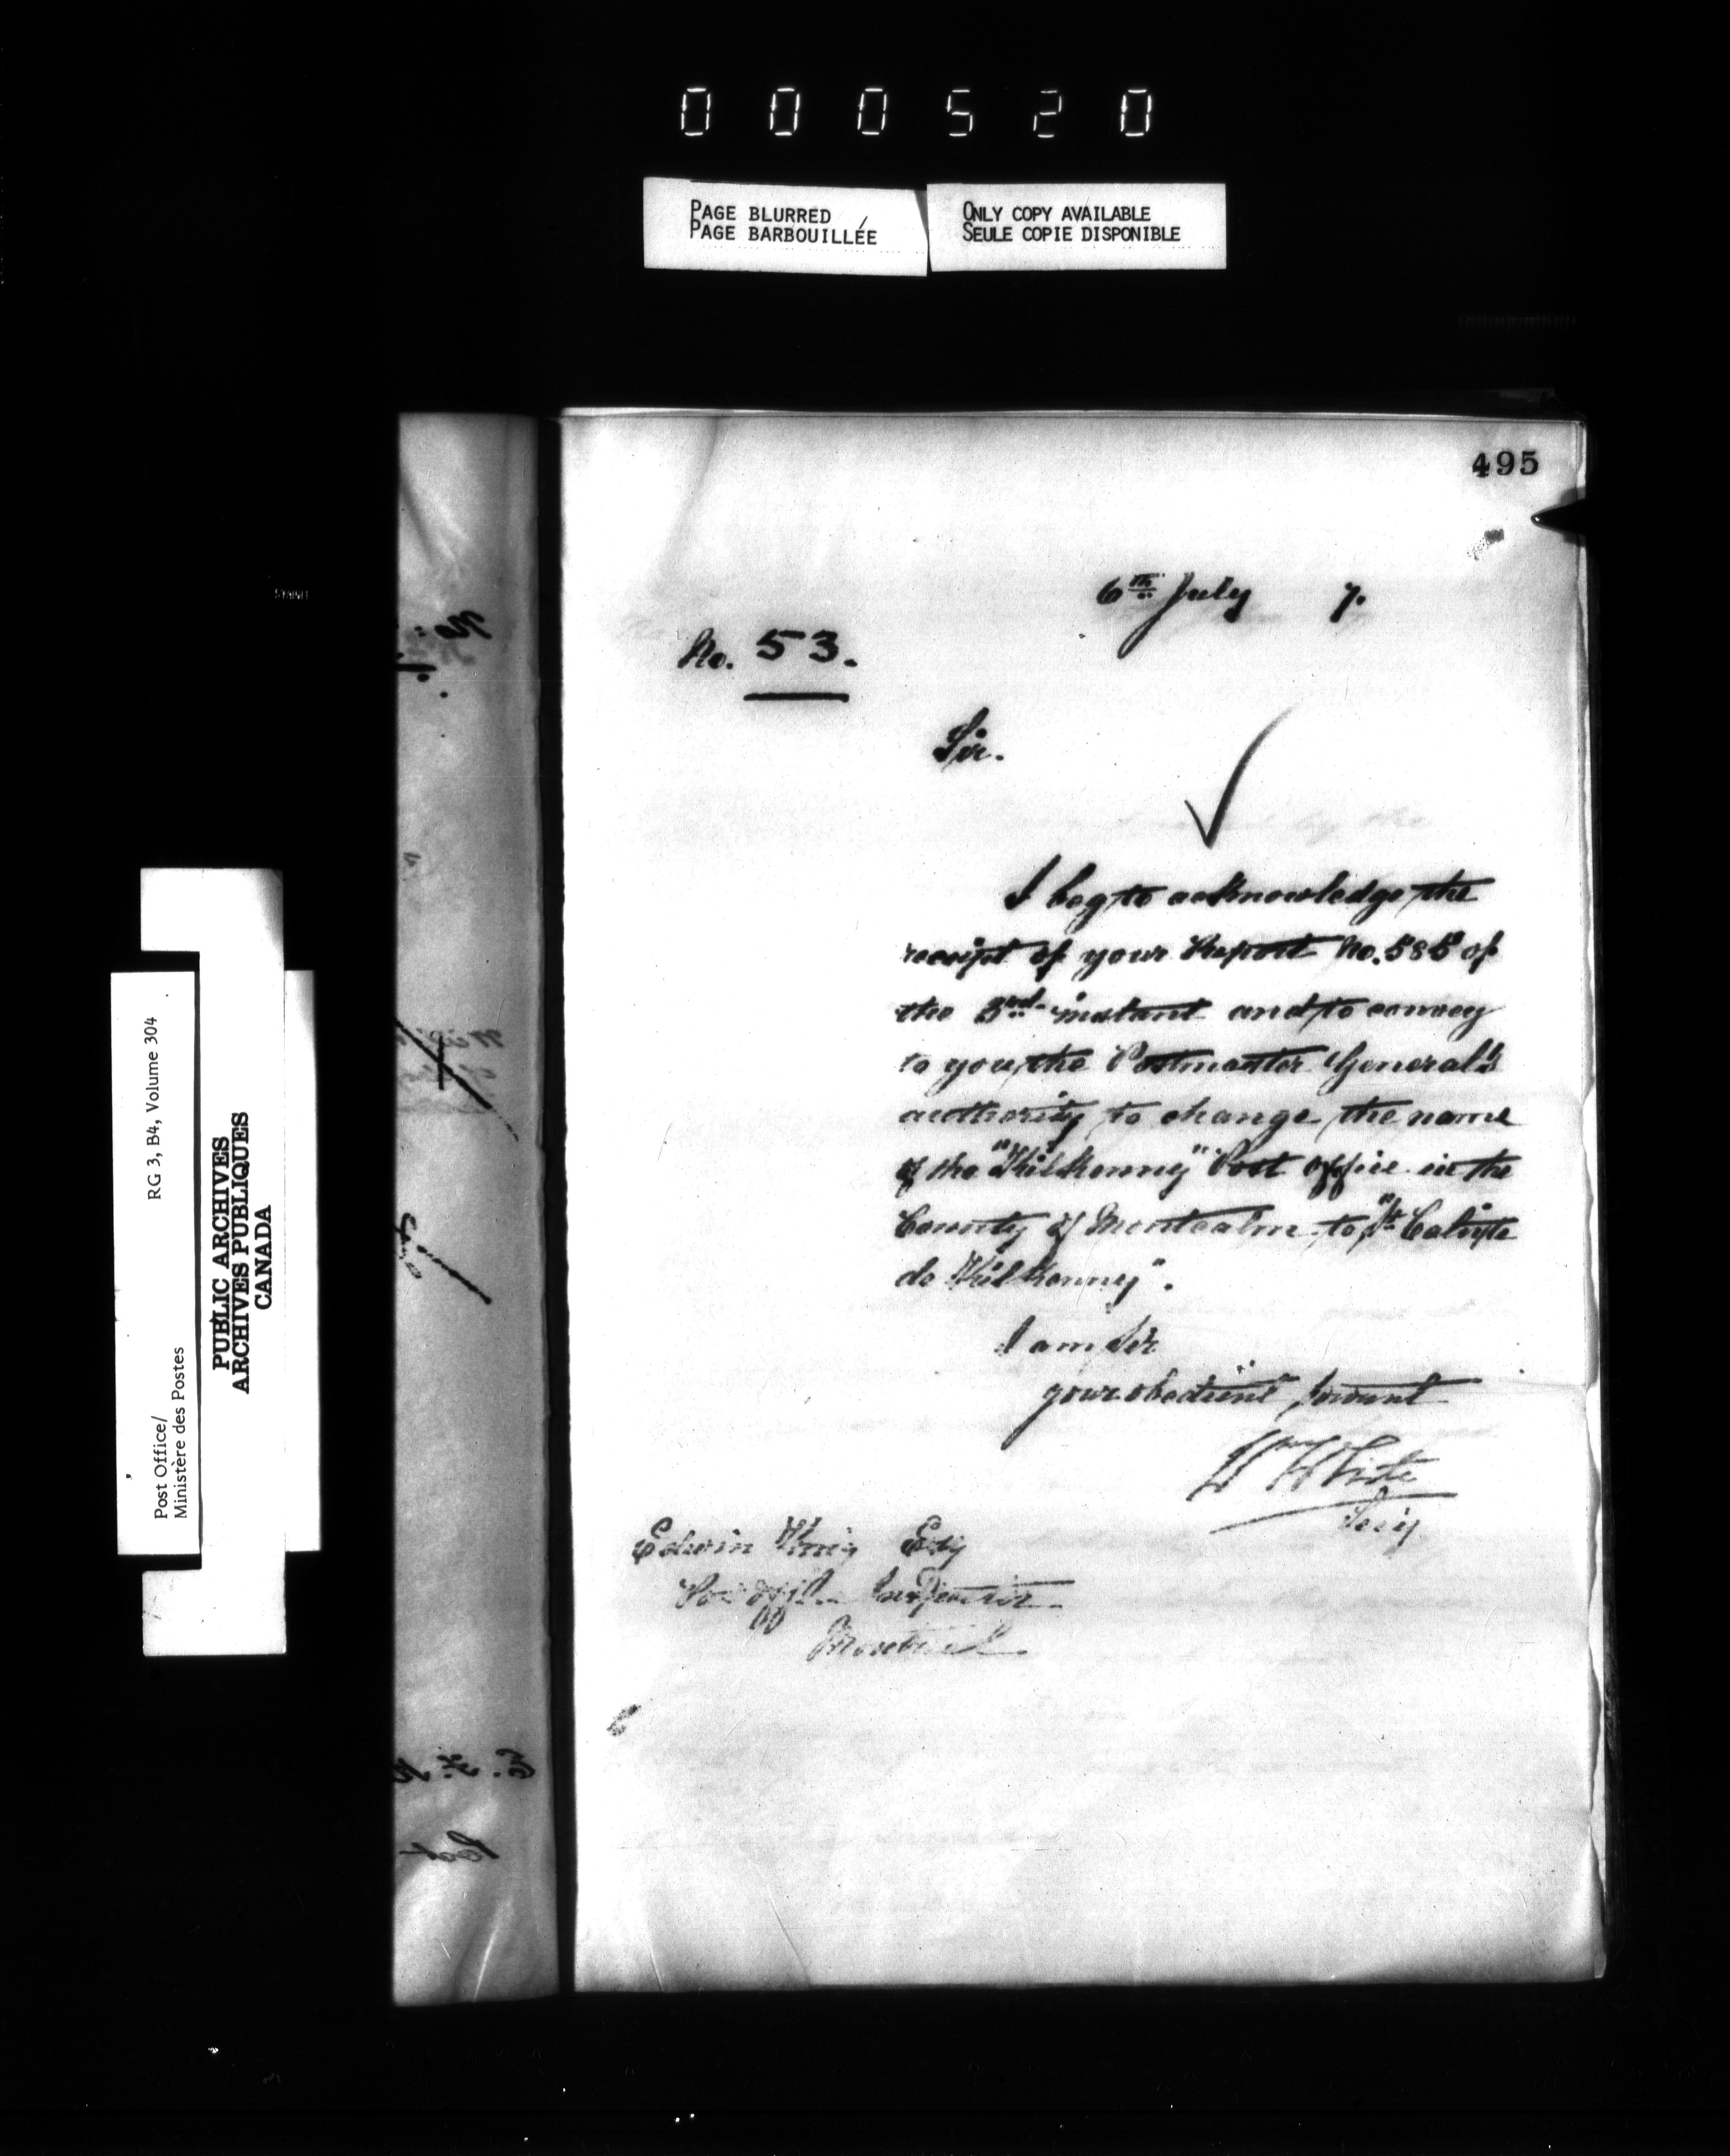 000520
PAGE BLURRED
PAGE BARBOUILLÉE
ONLY COPY AVAILABLE
SEULE COPIE DISPONIBLE
Post Office/
Ministère des Postes
RG 3, B4, Volume 304
PUBLIC ARCHIVES
ARCHIVES PUBLIQUES
CANADA
495
6th July 7.
No. 53.
Sir.
I beg to acknowledge the
receipt of your Report No. 585 of
the 3rd instant and to convey
to you the Postmaster General's
authority to change the name
of the "Kilkenny" Post Office in the
County of Montcalm to "St. Calixte
de Kilkenny".
I am Sir
your obedient Servant
Wm White
Secy
Edwin King Esq
Post Office Inspector
Montreal